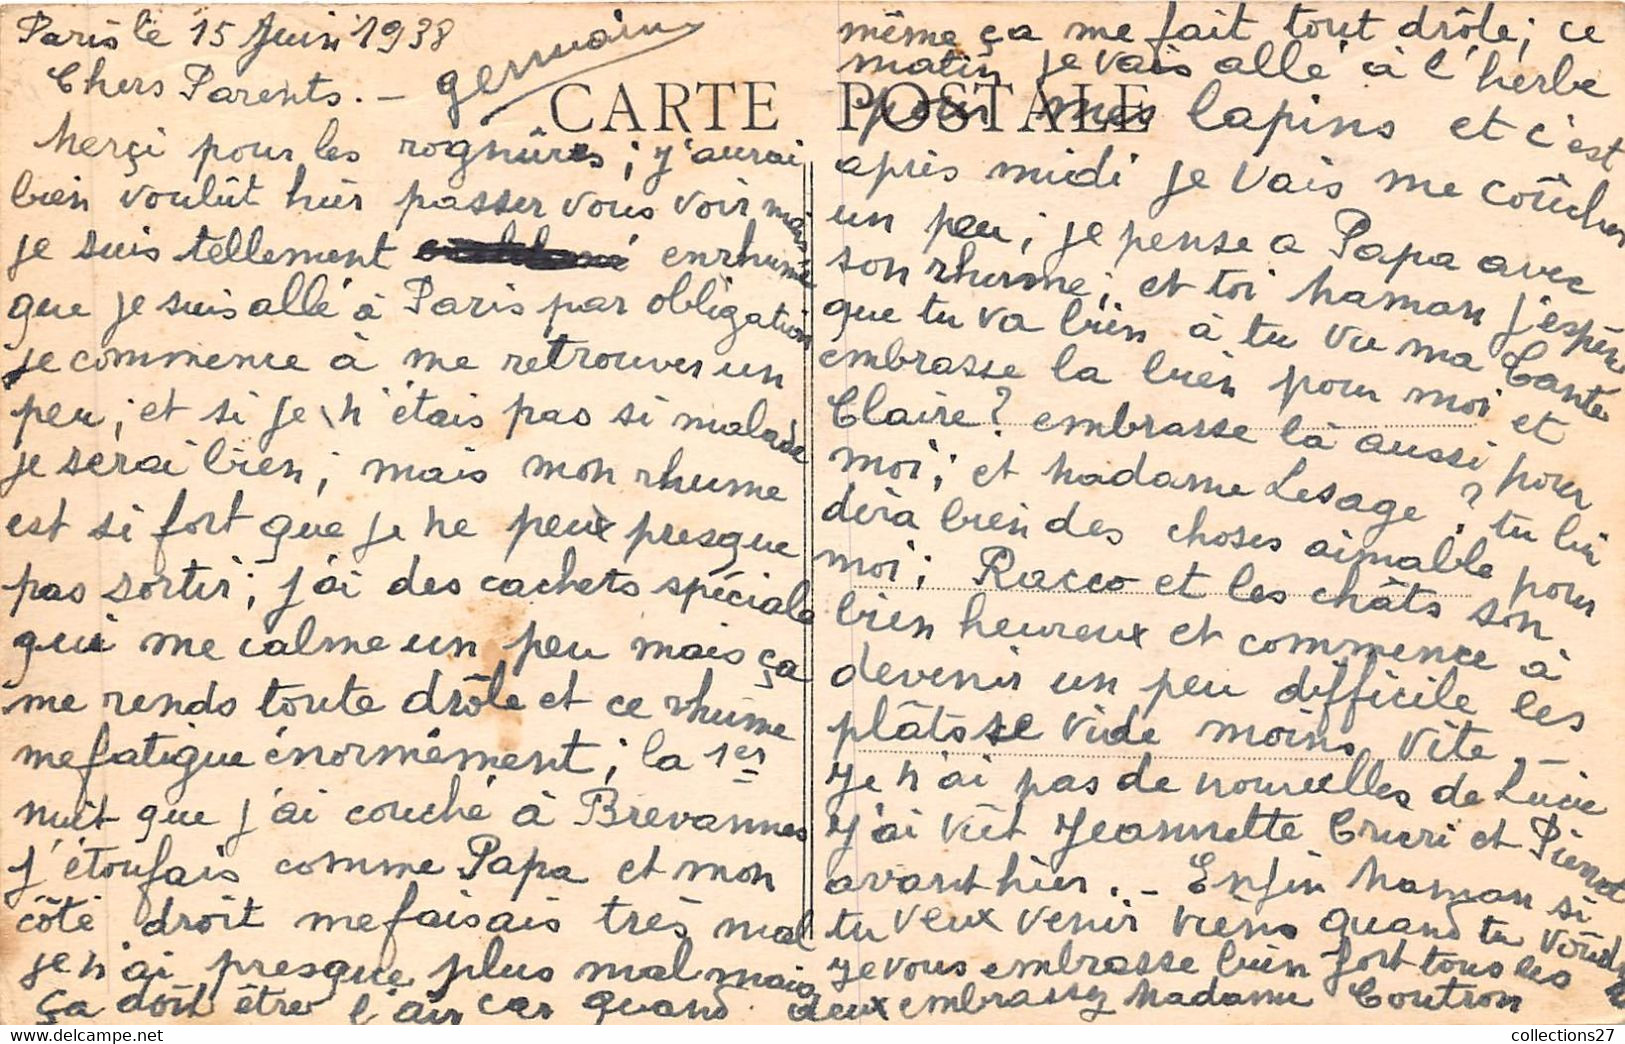 Paris le 15 Juin 1938
Chers Parents. – germaine
CARTE POSTALE
Merçi pour les rognûres ; j'aurai
bien voulût hier passer vous voir mais
je suis tellement enrhumé
que je suis allé à Paris par obligation
je commence à me retrouver un
peu ; et si je n'étais pas si malade
je serai bien ; mais mon rhume
est si fort que je ne peux presque
pas sortir ; j'ai des cachets spéciale
qui me calme un peu mais ça
me rends toute drôle et ce rhûme
me fatigue énormément ; la 1er
nuit que j'ai couché à Brevannes
j'étoufais comme Papa et mon
côté droit me faisais très mal
je n'ai presque plus mal mais
ça doit être l'air car quand
même ça me fait tout drôle ; ce
matin je vais allé à l'herbe
pour mes lapins et c'est
après midi je vais me coûcher
un peu ; je pense a Papa avec
son rhume ; et toi Maman j'espère
que tu va bien à tu vu ma Tante
embrasse la bien pour moi et
Claire ? embrasse là aussi pour
moi ; et Madame Lesage ? tu lui
dira bien des choses aimable pour
moi ; Racco et les châts son
bien heureux et commence à
devenir un peu difficile les
plâts se vide moins vite –
Je n'ai pas de nouvelles de Lucie
J'ai vût Jeannette et Pierrot
avant hier. – Enfin Maman si
tu veux venir viens quand tu voudras
Je vous embrasse bien fort tous les
deux embrassez Madame Coutron
collections27